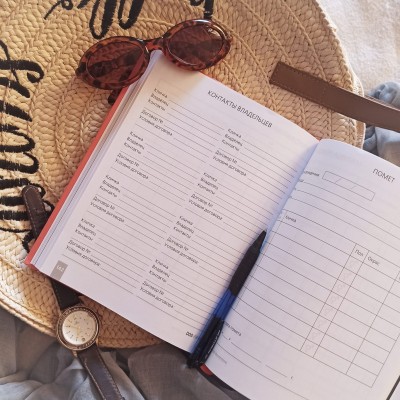 КОНТАКТЫ ВЛАДЕЛЬЦЕВ
Кличка
Владелец
Контакты
Договор №
Условия договора
Кличка
Владелец
Контакты
Договор №
Условия договора
Кличка
Владелец
Контакты
Договор №
Условия договора
Кличка
Владелец
Контакты
Договор №
Условия договора
Кличка
Владелец
Контакты
Договор №
Условия договора
Кличка
Владелец
Контакты
Договор №
Условия договора
Кличка
Владелец
Контакты
Договор №
Условия договора
Кличка
Владелец
Контакты
Договор №
Условия договора
ПОМЕТ
Пол
Окрас